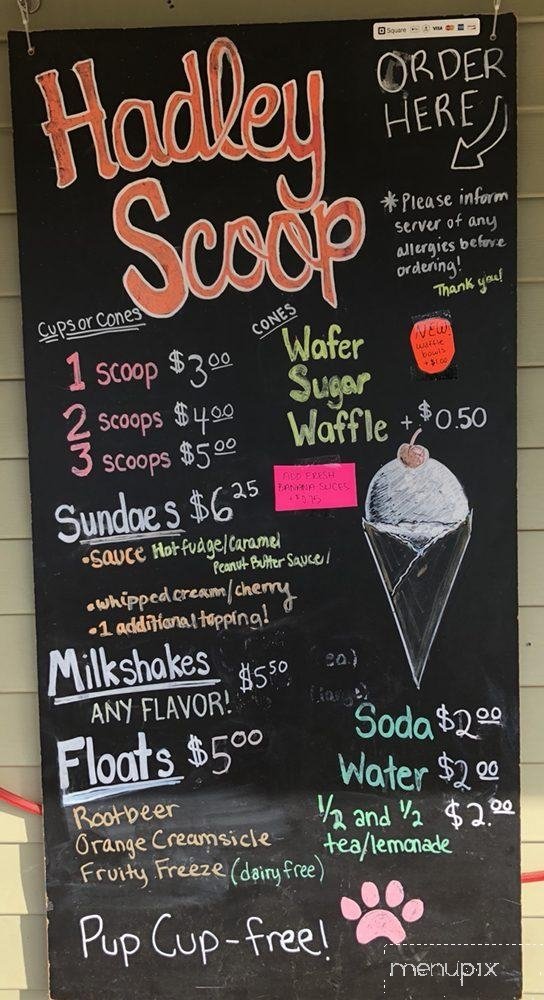 Square VISA
ORDER
HERE
Hadley
Scoop
*Please inform
server of any
allergies before
ordering!
Thank you!
Cups or Cones
1 scoop $3.00
2 scoops $4.00
3 scoops $5.00
CONES
Wafer
Sugar
Waffle +$0.50
NEW!
waffle
bowls
+$1.00
ADD FRESH
BANANA SLICES
+$0.75
Sundaes $6.25
•sauce Hot fudge/Caramel
Peanut Butter Sauce/
•whipped cream/cherry
•1 additional topping!
Milkshakes $5.50
ANY FLAVOR!
ea.)
(large)
Floats $5.00
Rootbeer
Orange Creamsicle
Fruity Freeze (dairy free)
Soda $2.00
Water $2.00
1/2 and 1/2 $2.00
tea/lemonade
Pup Cup-free!
menupix